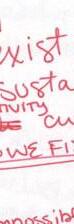 exist
susta
TIVITY
cu
OWE FI
mpossib